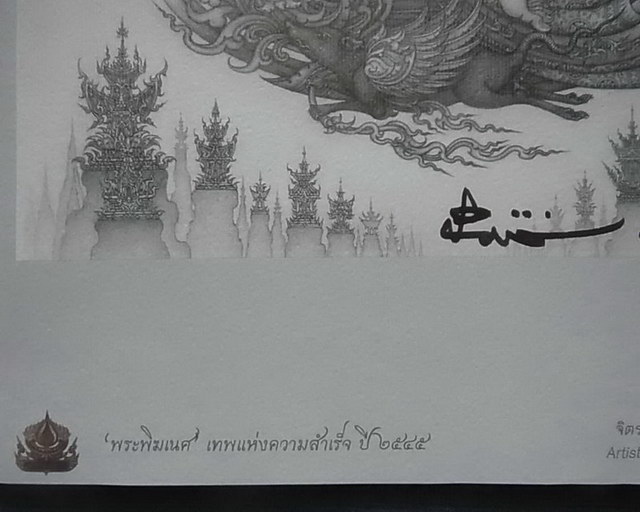 'พระพิฆเนศ' เทพแห่งความสำเร็จ ปี ๒๕๔๕
จิตร
Artist